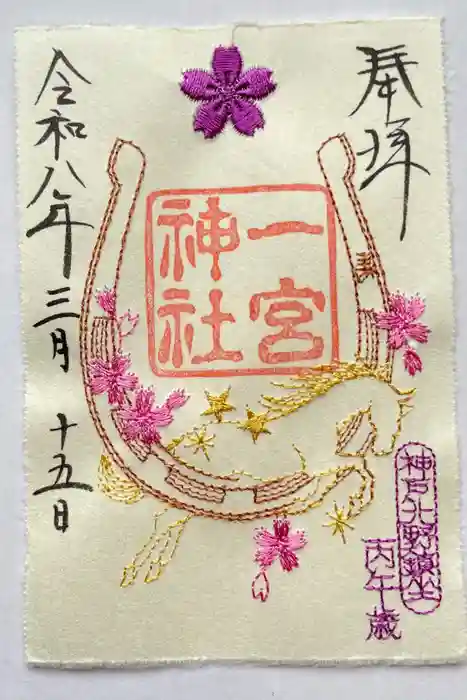 奉拝
一宮
神社
令和八年三月十五日
神戸北野鎮坐
丙午歳